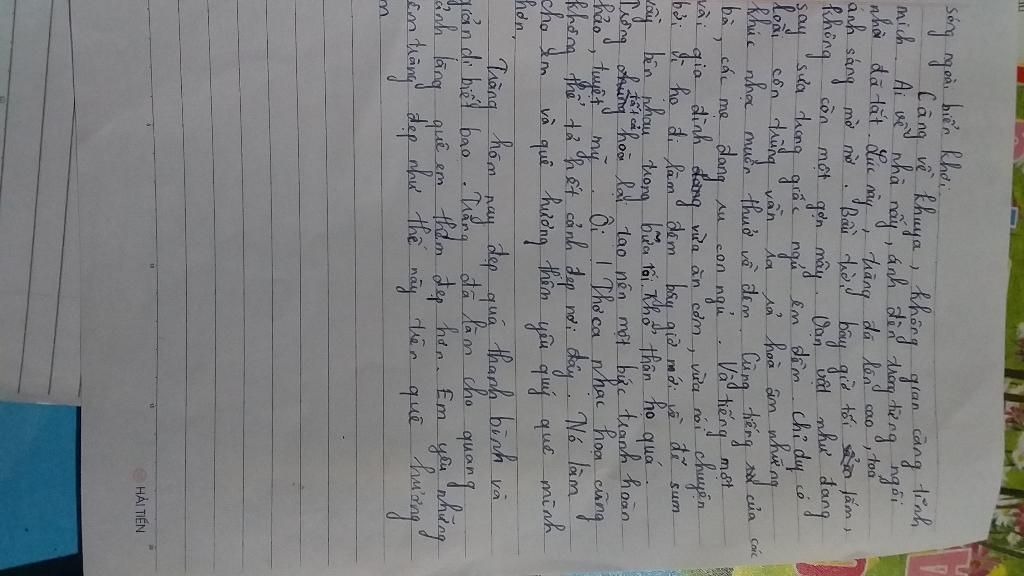 sóng ngoài biển khơi.
Càng về khuya, không gian càng tĩnh
mịch. Ai về nhà nấy, ánh đèn trong từng ngôi
nhà đã tắt. Lúc này, trăng đã lên cao, toả
ánh sáng mờ mờ. Bầu trời bây giờ tối lắm,
không còn một gợn mây. Vạn vật như đang
say sưa trong giấc ngủ êm đềm. chỉ duy có
loài côn trùng vẫn ra rả hoà âm những
khúc nhạc muôn thuở về đêm. Cùng tiếng của các
bà, các mẹ đang ru con ngủ. Và tiếng một
vài gia đình vừa ăn cơm, vừa nói chuyện
bởi vì họ đi làm đêm bây giờ mới về để sum
vầy bên nhau trong bữa tối. Khổ thân họ quá.
Tưởng tất cả hoà lại tạo nên một bức tranh hoàn
hảo, tuyệt mỹ. Ôi! Thơ ca nhạc hoạ cũng
không thể tả hết cảnh đẹp nơi đây. Nó làm
cho em và quê hương thêm yêu quý quê mình
hơn.
Trăng hôm nay đẹp quá thanh bình và
giản dị biết bao. Trăng đã làm cho quang
cảnh làng quê em thêm đẹp hơn. Em yêu những
đêm trăng đẹp như thế này trên quê hương
em
HẢI TIẾN